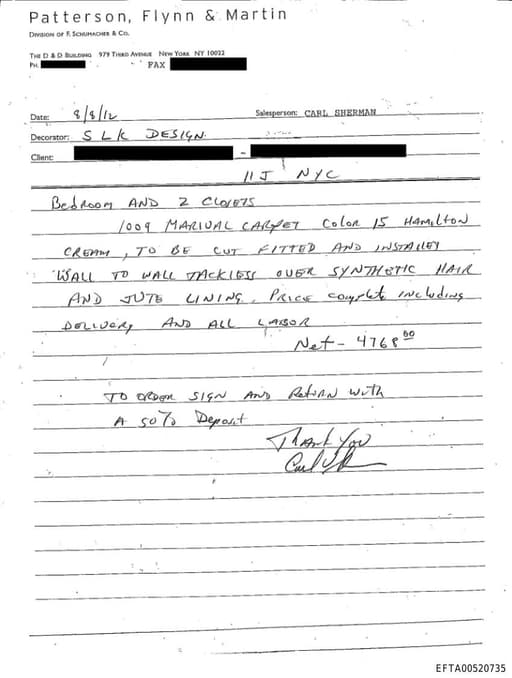 Patterson, Flynn & Martin
DIVISION OF F. SCHUMACHER & CO.
THE D & D BUILDING 979 THIRD AVENUE NEW YORK NY 10022
PH. FAX
Date: 8/8/12 Salesperson: CARL SHERMAN
Decorator: SLK DESIGN
Client: -
11J NYC
Bedroom AND 2 CLOSETS
1009 MARIVAL CARPET Color 15 HAMILTON
CREAM, TO BE CUT FITTED AND INSTALLED
WALL TO WALL TACKLESS OVER SYNTHETIC HAIR
AND JUTE LINING. PRICE complete including
DELIVERY AND ALL LABOR
Net - 4768 00
TO ORDER SIGN AND Return with
A 50% Deposit
Thank You
Carl
EFTA00520735